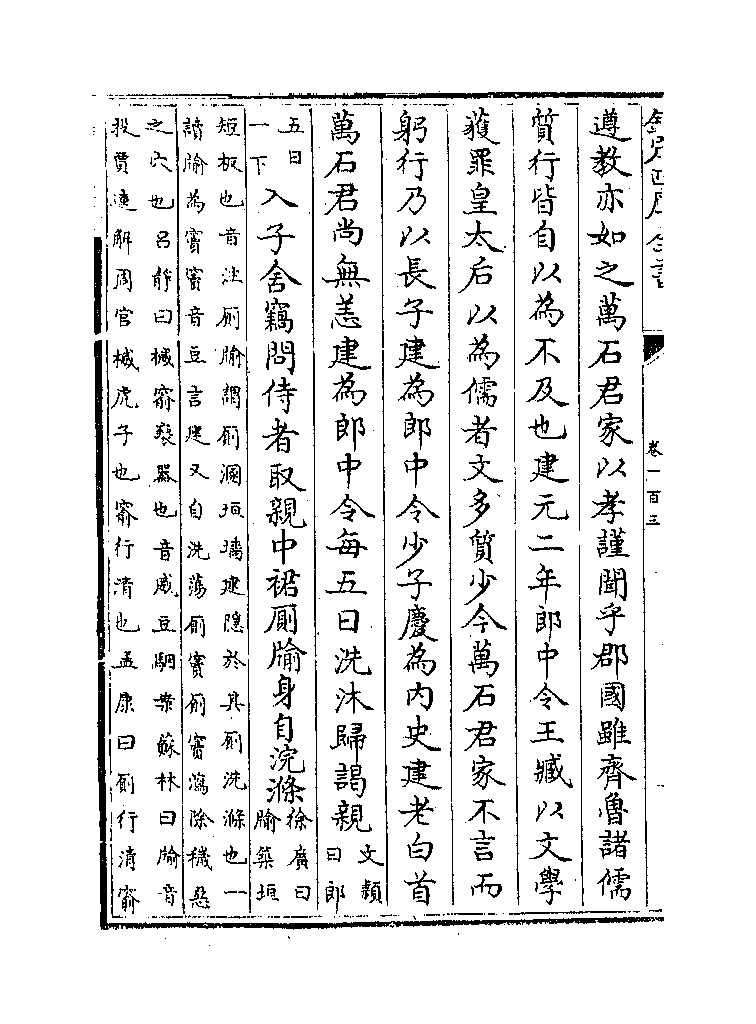 欽定四庫全書
卷一百三
遵教亦如之萬石君家以孝謹聞乎郡國雖齊魯諸儒
質行皆自以為不及也建元二年郎中令王臧以文學
獲罪皇太后以為儒者文多質少今萬石君家不言而
躬行乃以長子建為郎中令少子慶為内史建老白首
萬石君尚無恙建為郎中令每五日洗沐歸謁親文穎曰郎
五日一下入子舍竊問侍者取親中裙厠牏身自浣滌徐廣曰牏築垣
短板也音注厠牏謂厠溷垣墻建隱於其厠洗滌也一
讀牏為竇竇音豆言建又自洗蕩厠竇厠竇瀉除穢惡
之穴也吕静曰楲窬褻器也音威豆駰案蘇林曰牏音
投賈逵解周官楲虎子也窬行清也孟康曰厠行清窬